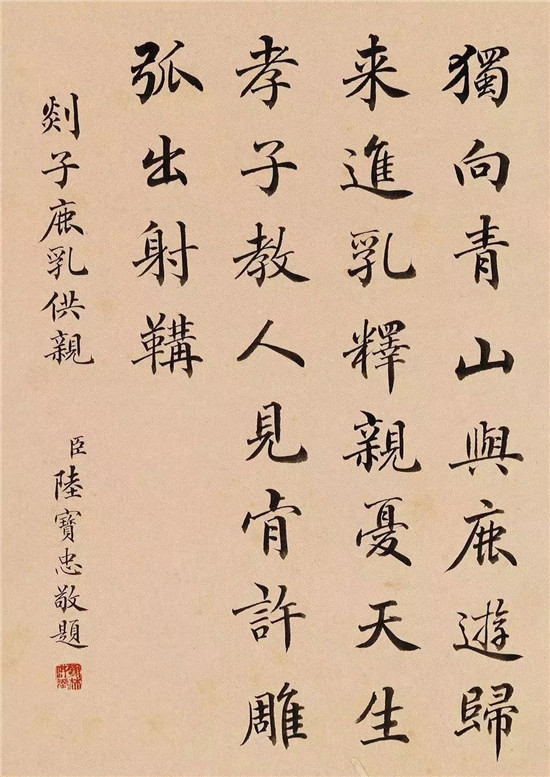 獨向青山與鹿遊歸
来進乳釋親憂天生
孝子教人見肎許雕
弧出射鞲
剡子鹿乳供親
臣陸寶忠敬題